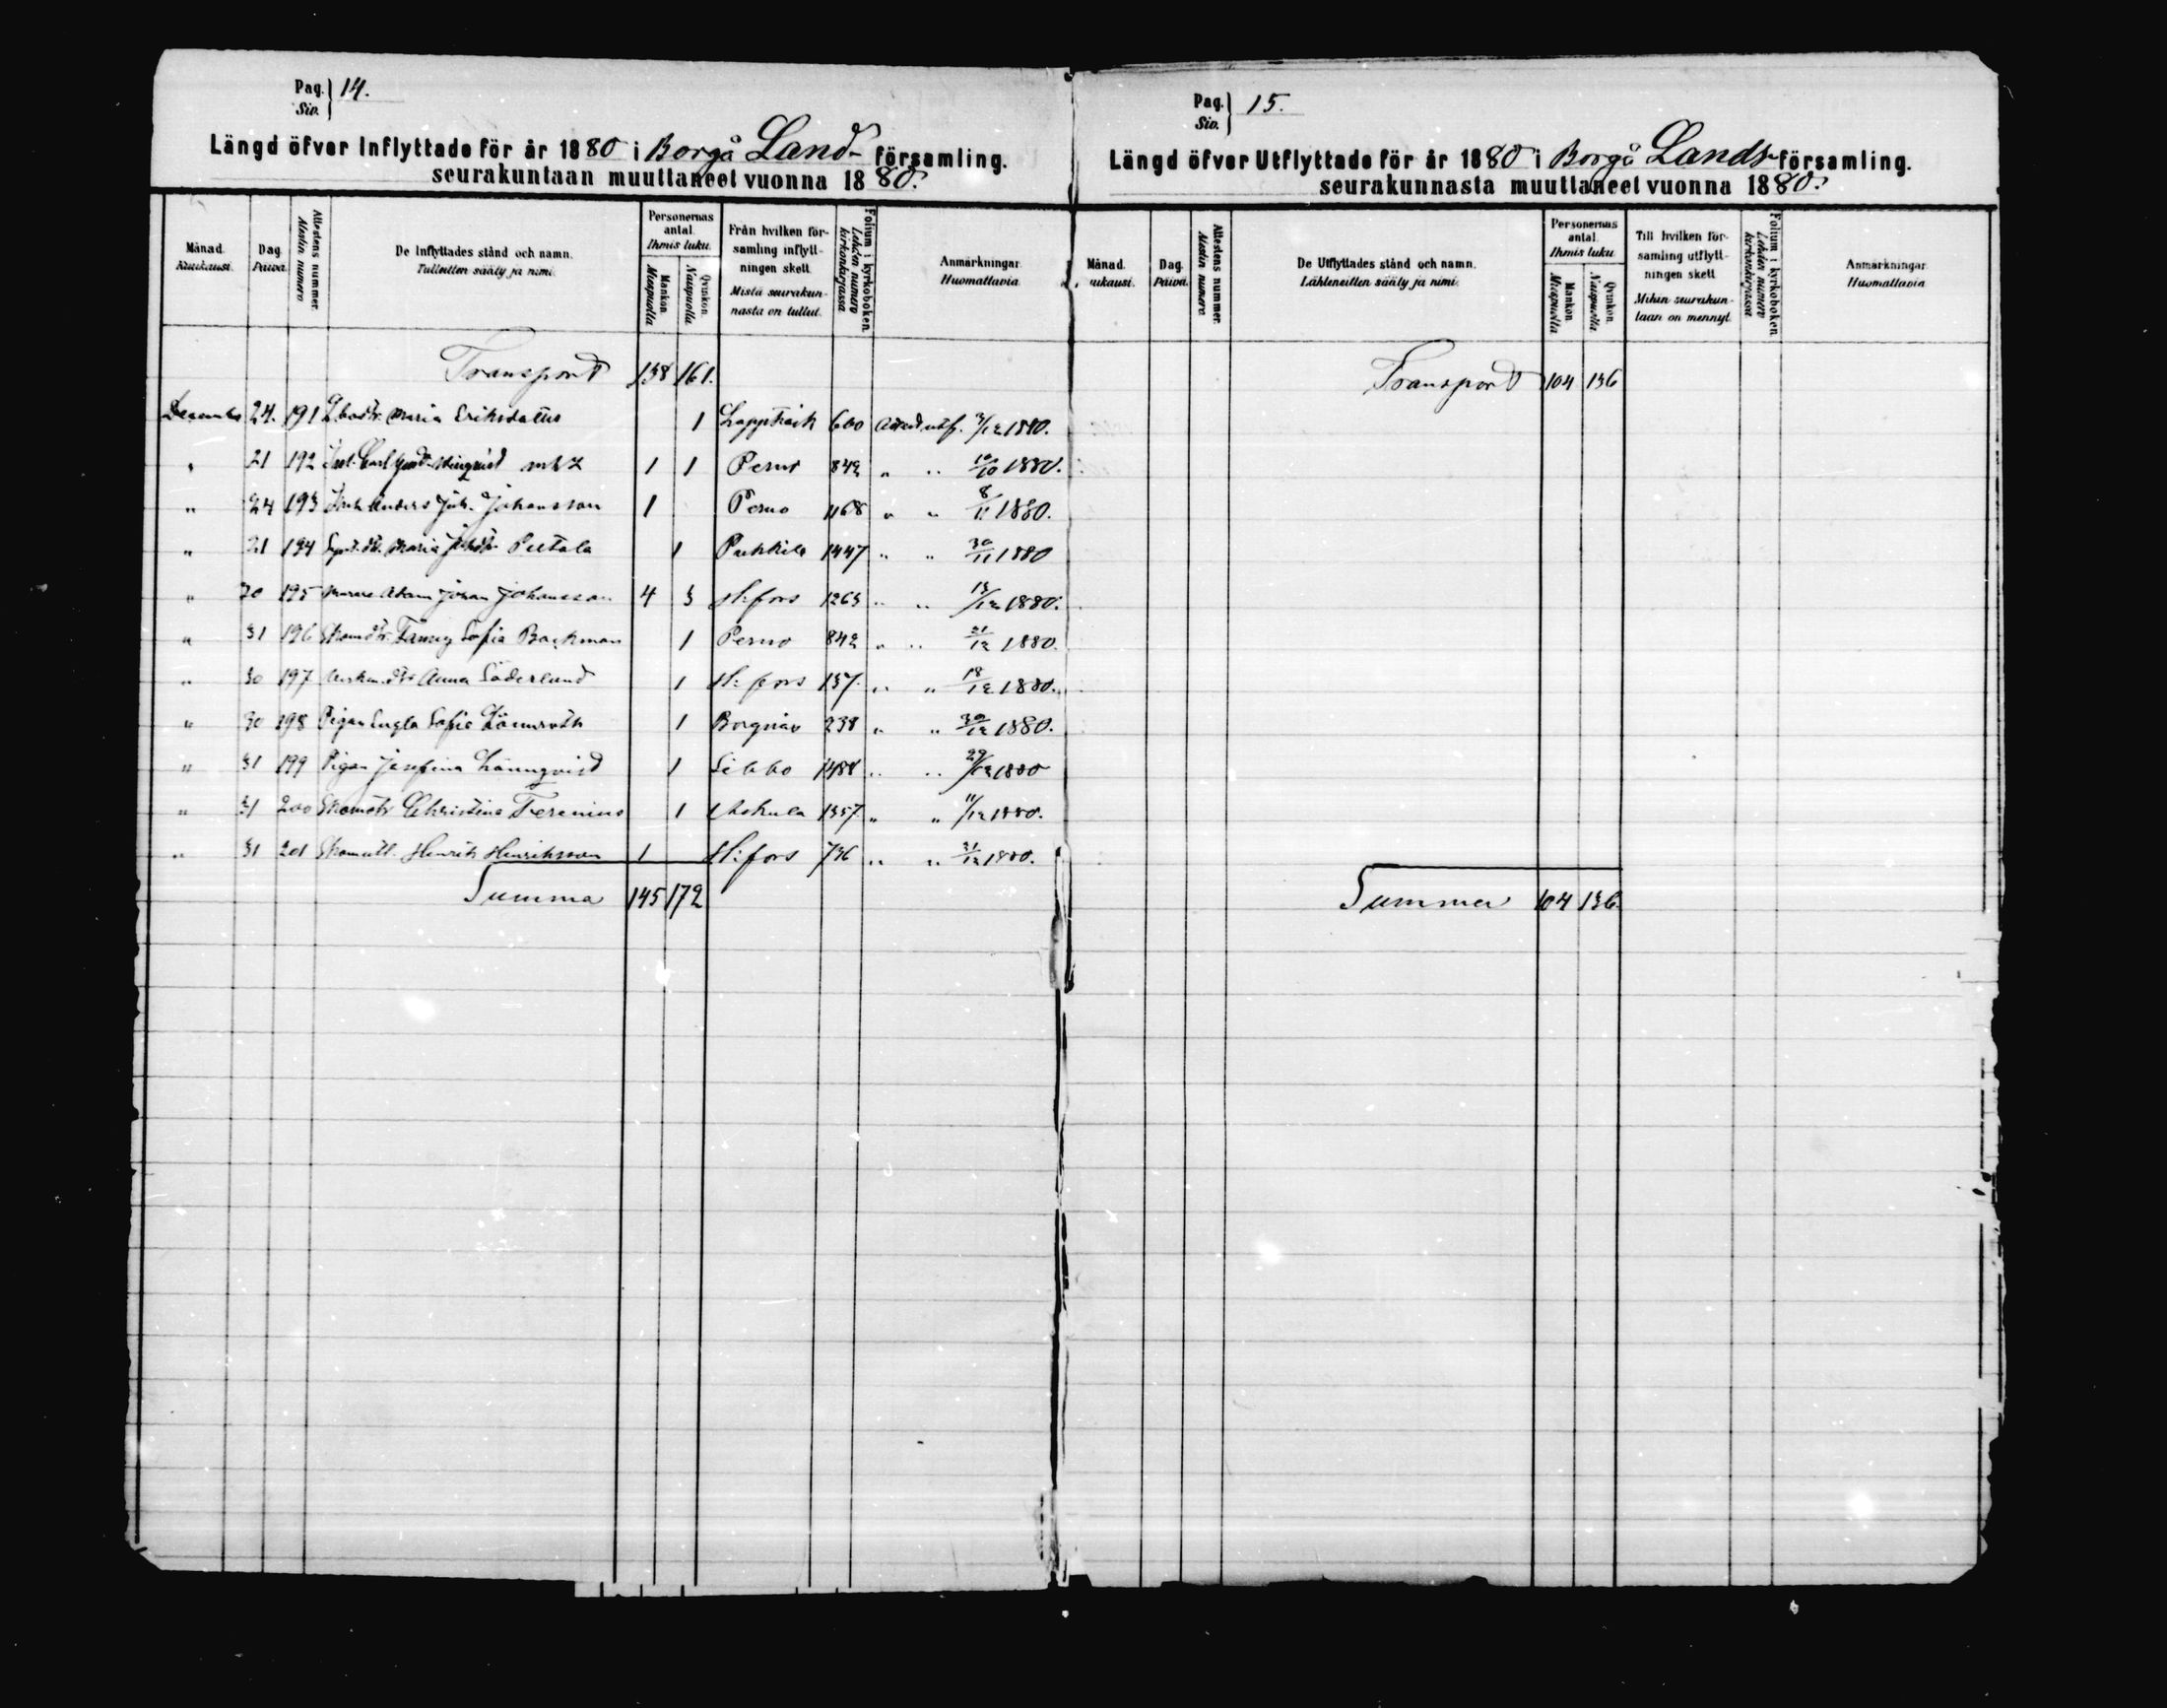 Pag. 14.
Siv.
Längd öfver Inflyttade för år 1880 i Borgå Land- församling.
seurakuntaan muuttaneet vuonna 1880.
Månad. Kuukausi. Dag. Päivä. Attestens nummer. Atestin numero De Inflyttades stånd och namn. Tulleitten sääty ja nimi. Personernas antal. Ihmis luku. Mankön. Miespuolia Qvinkön. Naispuolia Från hvilken församling inflyttningen skett. Mistä seurakunnasta on tullut. Folium i kyrkoboken. Lehden numero kirkonkirjassa Anmärkningar. Huomattavia.
Transport 138 161.
December 24. 191 Maria Eriksdatter 1 Lappträsk 600 utf. 3/12 1880.
" 21 192 Carl 1 1 Perno 842 " " 10/10 1880.
" 24 193 Anders Joh. Johansson 1 Perno 1168 " " 8/11 1880.
" 21 194 Maria 1 Pukkila 1447 " " 30/11 1880
" 30 195 Adam Johan Johansson 4 3 H:fors 1263 " " 13/12 1880.
" 31 196 Fanny Sofia Backman 1 Perno 842 " " 21/12 1880.
" 30 197 Anna Söderlund 1 H:fors 137. " " 18/12 1880.
" 30 198 Pigan Engla Sofia Lönnroth 1 Borgnäs 238 " " 30/12 1880.
" 31 199 Pigan Josefina Lönnqvist 1 Sibbo 1488 " " 29/12 1880
" 31 200 Christina Ferenius 1 Askula 1357. " " 11/12 1880.
" 31 201 Henrik Henriksson 1 H:fors 736 " " 31/12 1880.
Summa 145 172
Pag. 15.
Siv.
Längd öfver Utflyttade för år 1880 i Borgå Lands församling.
seurakunnasta muuttaneet vuonna 1880.
Månad. ukausi. Dag. Päivä. Attestens nummer. Atestin numero De Utflyttades stånd och namn. Lähteneitten sääty ja nimi. Personernas antal. Ihmis luku. Mankön Miespuolia Qvinkön. Naispuolia. Till hvilken församling utflyttningen skett. Mihin seurakuntaan on mennyt. Folium i kyrkoboken. Lehden numero kirkonkirjassa Anmärkningar. Huomattavia
Transport 104 136
Summa 104 136.